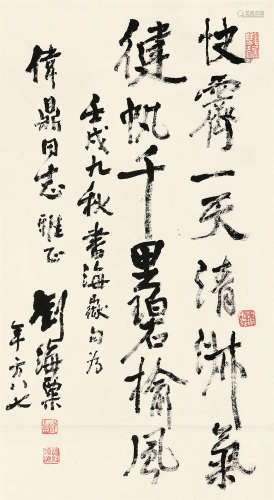 快霽一天清淑氣
健帆千里碧榆風
壬戌九秋書海嶽句为
偉鼎同志雅正
劉海粟
年方八七